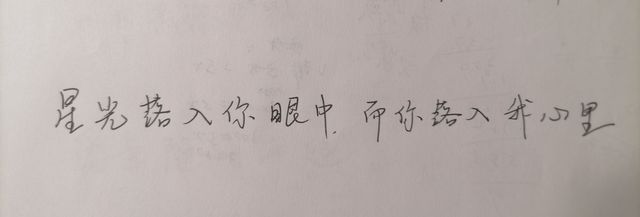 星光落入你眼中,而你落入我心里